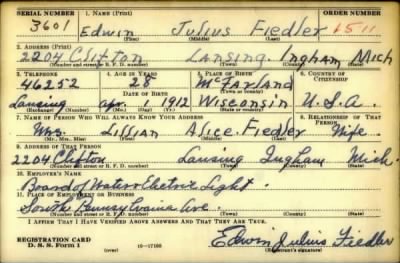 SERIAL NUMBER 1. NAME (Print) ORDER NUMBER
3601 Edwin Julius Fiedler 1511
(First) (Middle) (Last)
2. ADDRESS (Print)
2204 Clifton Lansing, Ingham Mich
(Number and street or R. F. D. number) (Town) (County) (State)
3. TELEPHONE 4. AGE IN YEARS 5. PLACE OF BIRTH 6. COUNTRY OF CITIZENSHIP
46252 28 McFarland
DATE OF BIRTH (Town or county)
Lansing Apr. 1, 1912 Wisconsin U.S.A.
(Exchange) (Number) (Mo.) (Day) (Yr.) (State or country)
7. NAME OF PERSON WHO WILL ALWAYS KNOW YOUR ADDRESS 8. RELATIONSHIP OF THAT PERSON
Mrs. Lillian Alice Fiedler Wife
(Mr., Mrs., Miss) (First) (Middle) (Last)
9. ADDRESS OF THAT PERSON
2204 Clifton Lansing Ingham Mich.
(Number and street or R. F. D. number) (Town) (County) (State)
10. EMPLOYER'S NAME
Board of Water & Electric Light.
11. PLACE OF EMPLOYMENT OR BUSINESS
South Pennsylvania Ave.
(Number and street or R. F. D. number) (Town) (County) (State)
I AFFIRM THAT I HAVE VERIFIED ABOVE ANSWERS AND THAT THEY ARE TRUE.
REGISTRATION CARD
D. S. S. Form 1 16—17105 Edwin Julius Fiedler
(Registrant's signature)